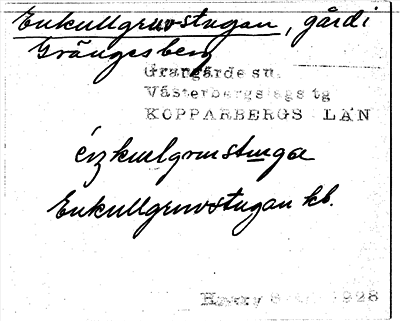 Enkullgruvstugan, gård i
Grängesberg
Grangärde sn.
Västerbergslags tg
KOPPARBERGS LÄN
énkullgruvstuga
Enkullgruvstugan kb.
1928